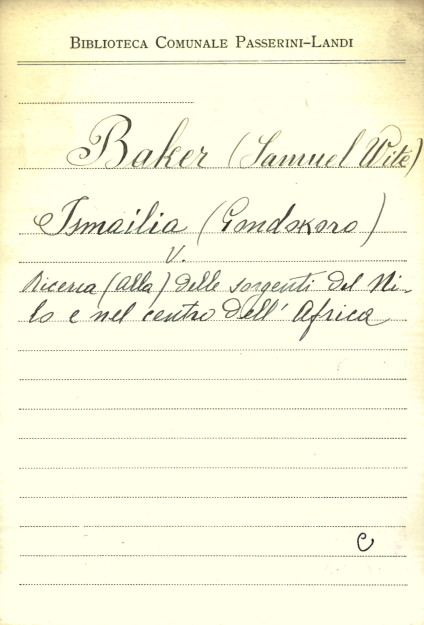 Biblioteca Comunale Passerini-Landi
Baker (Samuel Wite)
Ismailia (Gondokoro)
V.
Ricerca (Alla) delle sorgenti del Ni-
lo e nel centro dell' Africa
C